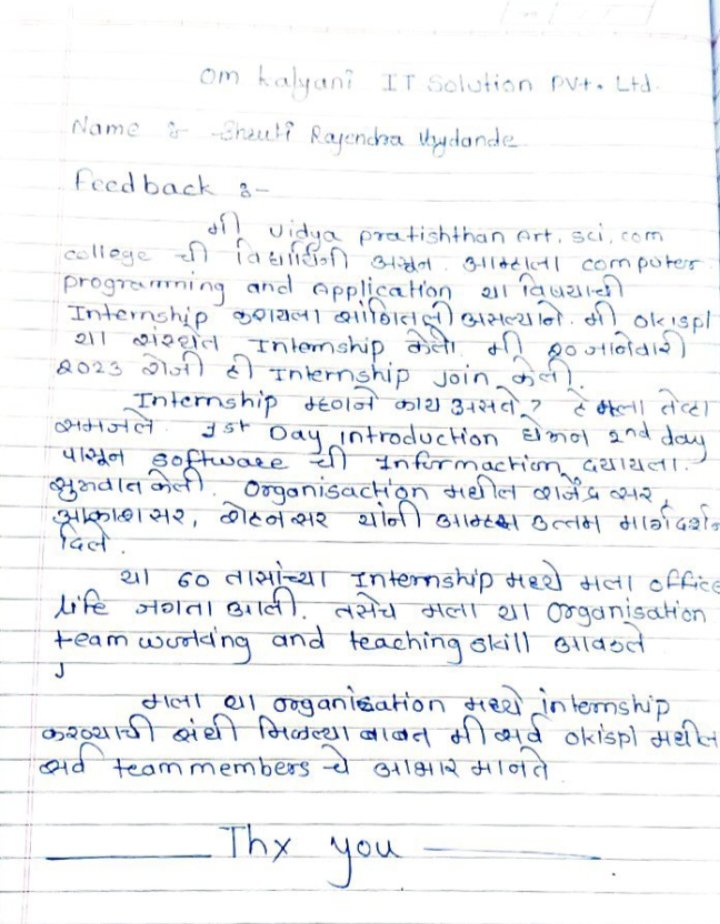 Om kalyani IT Solution Pvt. Ltd.
Name :- Shruti Rajendra
Feedback :-
मी Vidya pratishthan Art, sci, com
college ची विद्यार्थिनी असून आम्हाला computer
programming and Application या विषयाची
Internship करायला सांगितली असल्याने. मी okispl
या संस्थेत Internship केली. मी २० जानेवारी
2023 रोजी ही Internship join केली.
Internship म्हणजे काय असते? हे मला तेव्हा
समजले. 1st Day introduction घेऊन 2nd day
पासून software ची Informaction द्यायला.
सुरुवात केली. Organisaction मधील राजेंद्र सर,
आकाश सर, रोहन सर यांनी आम्हाला उत्तम मार्गदर्शन
दिले.
या 60 तासांच्या Internship मध्ये मला office
life जगता आली. तसेच मला या Organisation
team working and teaching skill आवडले
मला या organisation मध्ये internship
करण्याची संधी मिळाल्या बाबत मी सर्व okispl मधील
सर्व team members चे आभार मानते
Thx you